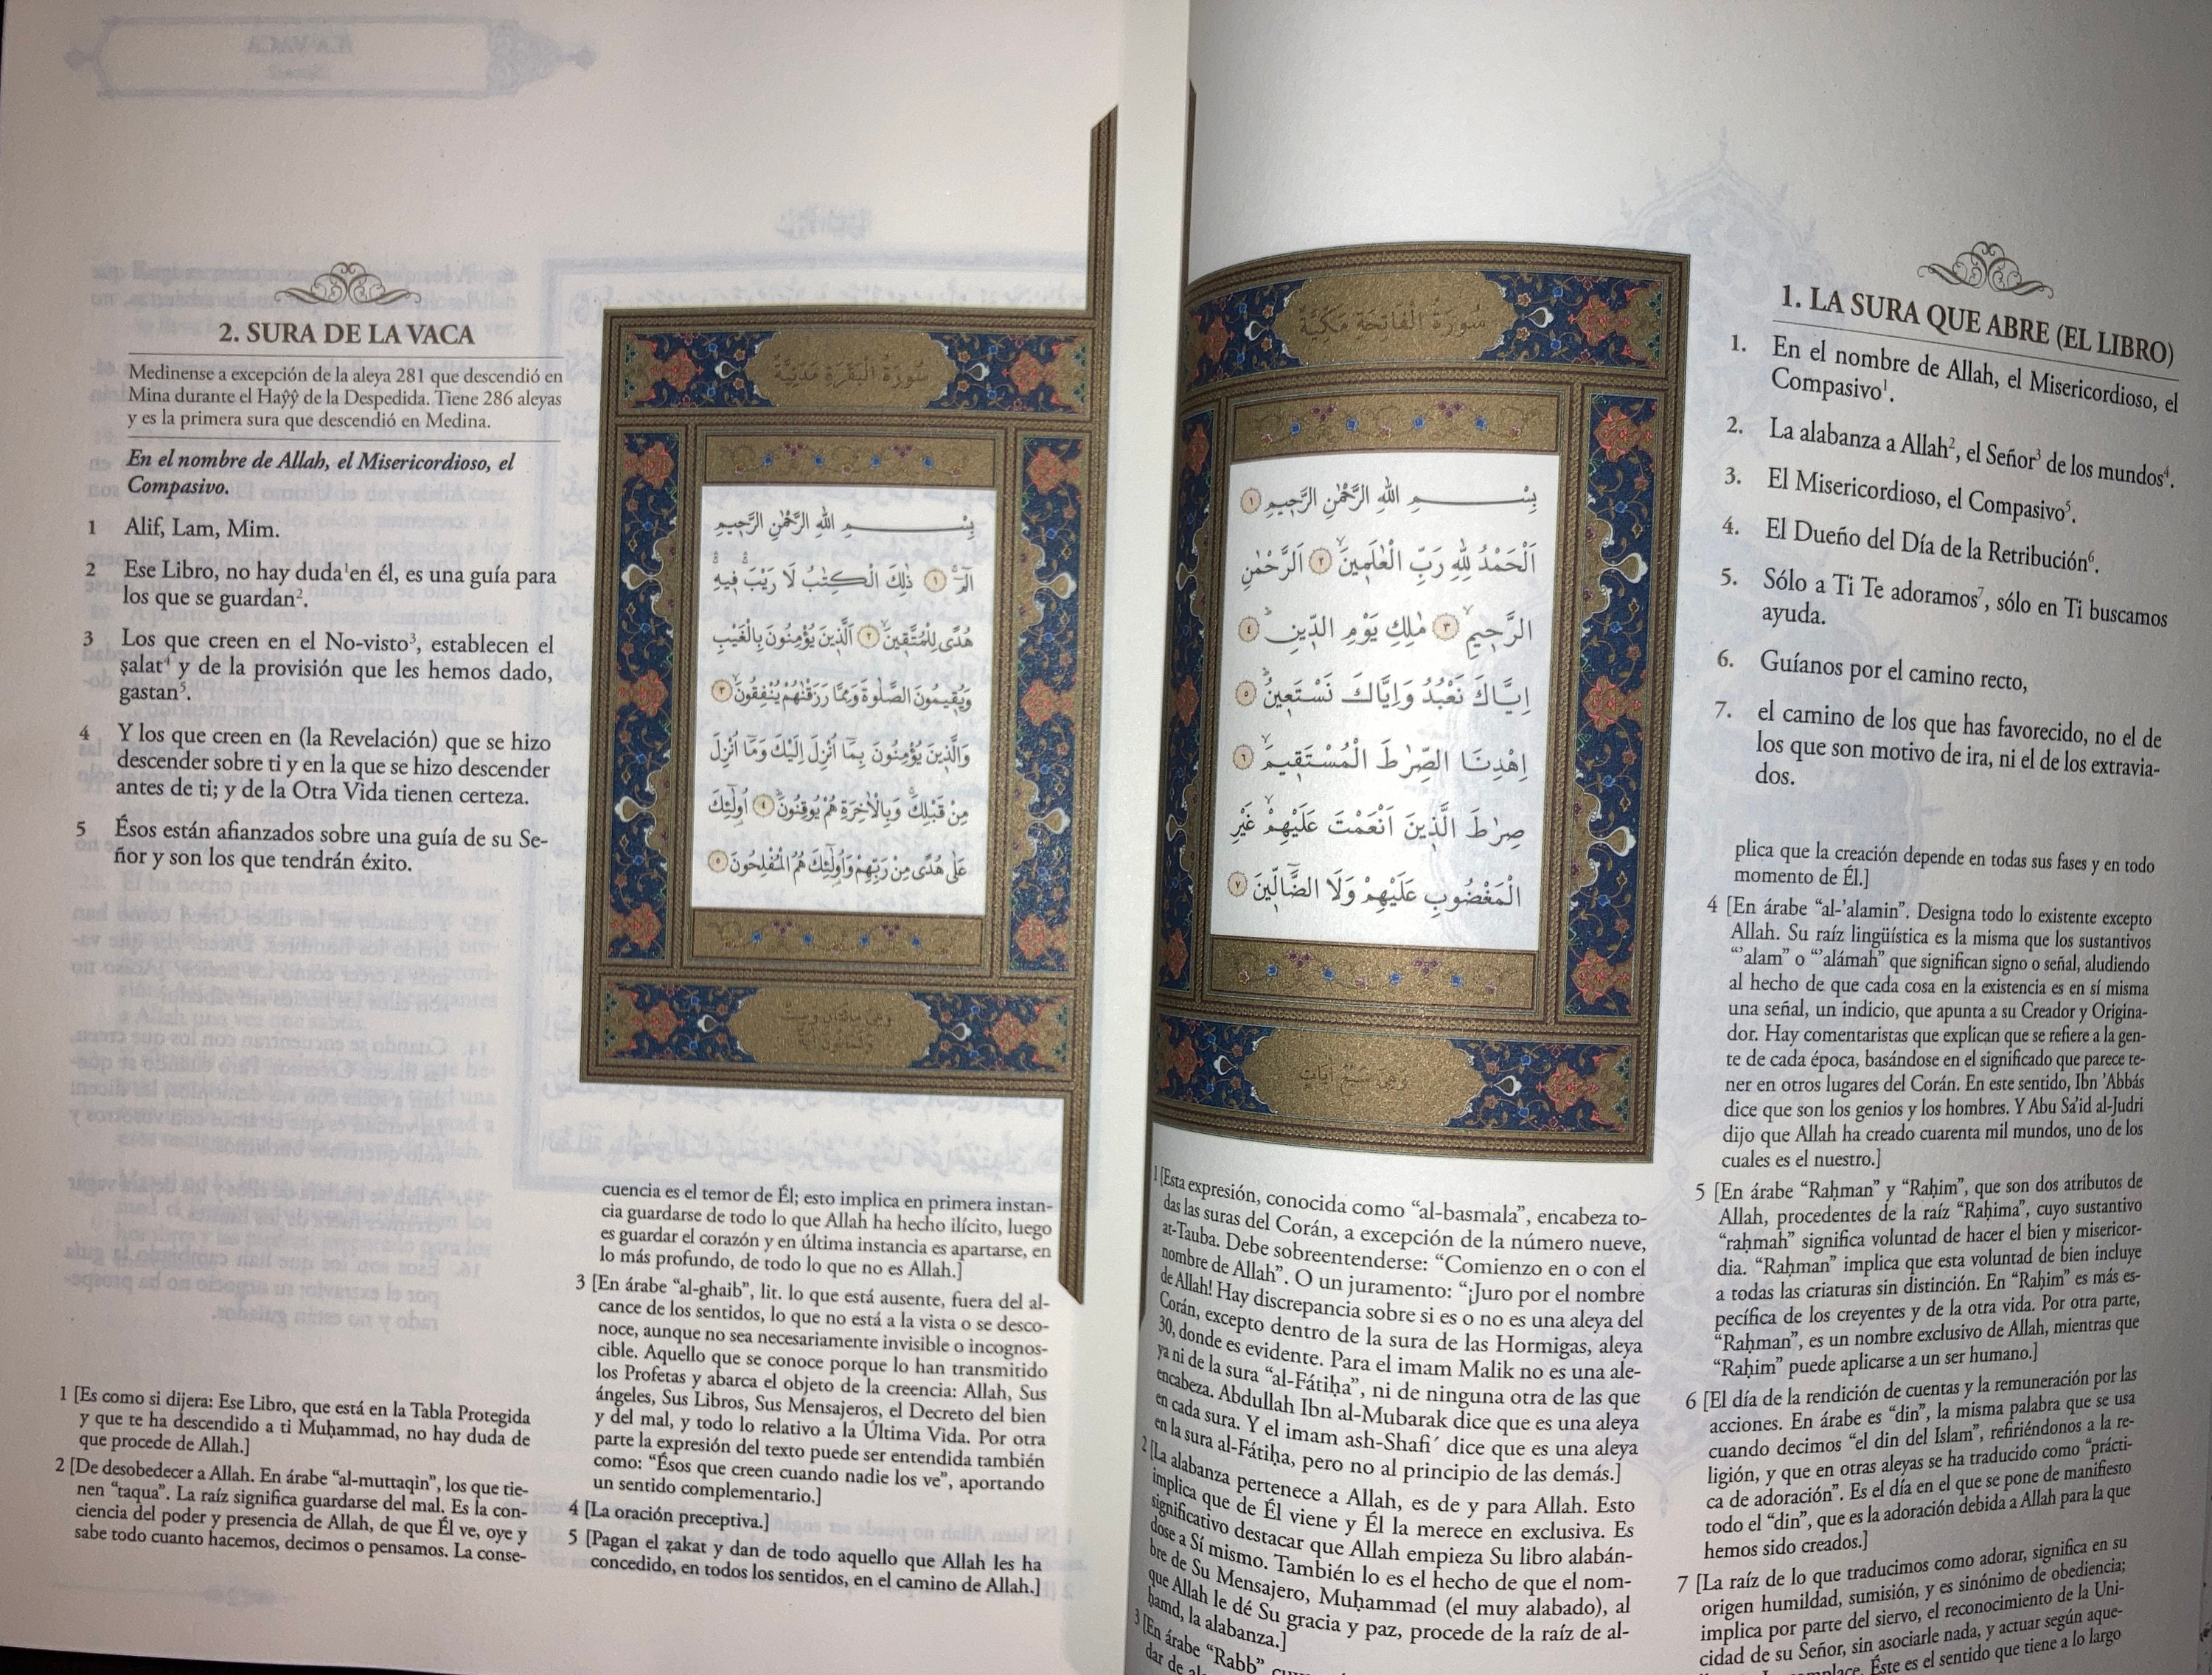 1. LA SURA QUE ABRE (EL LIBRO)
1. En el nombre de Allah, el Misericordioso, el
Compasivo¹.
2. La alabanza a Allah², el Señor³ de los mundos⁴.
3. El Misericordioso, el Compasivo⁵.
4. El Dueño del Día de la Retribución⁶.
5. Sólo a Ti Te adoramos⁷, sólo en Ti buscamos
ayuda.
6. Guíanos por el camino recto,
7. el camino de los que has favorecido, no el de
los que son motivo de ira, ni el de los extravia-
dos.
سُورَةُ الْفَاتِحَةِ مَكِّيَّةٌ
بِسْمِ اللهِ الرَّحْمٰنِ الرَّحِيمِ ١
اَلْحَمْدُ لِلّٰهِ رَبِّ الْعَالَمِينَ ٢ اَلرَّحْمٰنِ
الرَّحِيمِ ٣ مٰلِكِ يَوْمِ الدِّينِ ٤
اِيَّاكَ نَعْبُدُ وَاِيَّاكَ نَسْتَعِينُ ٥
اِهْدِنَا الصِّرٰطَ الْمُسْتَقِيمَ ٦
صِرٰطَ الَّذِينَ اَنْعَمْتَ عَلَيْهِمْ غَيْرِ
الْمَغْضُوبِ عَلَيْهِمْ وَلَا الضَّٓالِّينَ ٧
وَهِيَ سَبْعُ آيَاتٍ
1 [Esta expresión, conocida como “al-basmala”, encabeza to-
das las suras del Corán, a excepción de la número nueve,
at-Tauba. Debe sobreentenderse: “Comienzo en o con el
nombre de Allah”. O un juramento: “¡Juro por el nombre
de Allah! Hay discrepancia sobre si es o no es una aleya del
Corán, excepto dentro de la sura de las Hormigas, aleya
30, donde es evidente. Para el imam Malik no es una ale-
ya ni de la sura “al-Fátiḥa”, ni de ninguna otra de las que
encabeza. Abdullah Ibn al-Mubarak dice que es una aleya
en cada sura. Y el imam ash-Shafi´ dice que es una aleya
en la sura al-Fátiḥa, pero no al principio de las demás.]
2 [La alabanza pertenece a Allah, es de y para Allah. Esto
implica que de Él viene y Él la merece en exclusiva. Es
significativo destacar que Allah empieza Su libro alabán-
dose a Sí mismo. También lo es el hecho de que el nom-
bre de Su Mensajero, Muḥammad (el muy alabado), al
que Allah le dé Su gracia y paz, procede de la raíz de al-
ḥamd, la alabanza.]
3 [En árabe “Rabb”
dar de
plica que la creación depende en todas sus fases y en todo
momento de Él.]
4 [En árabe “al-’alamin”. Designa todo lo existente excepto
Allah. Su raíz lingüística es la misma que los sustantivos
“’alam” o “’alámah” que significan signo o señal, aludiendo
al hecho de que cada cosa en la existencia es en sí misma
una señal, un indicio, que apunta a su Creador y Origina-
dor. Hay comentaristas que explican que se refiere a la gen-
te de cada época, basándose en el significado que parece te-
ner en otros lugares del Corán. En este sentido, Ibn ’Abbás
dice que son los genios y los hombres. Y Abu Sa’id al-Judri
dijo que Allah ha creado cuarenta mil mundos, uno de los
cuales es el nuestro.]
5 [En árabe “Raḥman” y “Raḥim”, que son dos atributos de
Allah, procedentes de la raíz “Raḥima”, cuyo sustantivo
“raḥmah” significa voluntad de hacer el bien y misericor-
dia. “Raḥman” implica que esta voluntad de bien incluye
a todas las criaturas sin distinción. En “Raḥim” es más es-
pecífica de los creyentes y de la otra vida. Por otra parte,
“Raḥman”, es un nombre exclusivo de Allah, mientras que
“Raḥim” puede aplicarse a un ser humano.]
6 [El día de la rendición de cuentas y la remuneración por las
acciones. En árabe es “din”, la misma palabra que se usa
cuando decimos “el din del Islam”, refiriéndonos a la re-
ligión, y que en otras aleyas se ha traducido como “prácti-
ca de adoración”. Es el día en el que se pone de manifiesto
todo el “din”, que es la adoración debida a Allah para la que
hemos sido creados.]
7 [La raíz de lo que traducimos como adorar, significa en su
origen humildad, sumisión, y es sinónimo de obediencia;
implica por parte del siervo, el reconocimiento de la Uni-
cidad de su Señor, sin asociarle nada, y actuar según aque-
Éste es el sentido que tiene a lo largo
2. SURA DE LA VACA
Medinense a excepción de la aleya 281 que descendió en
Mina durante el Haŷŷ de la Despedida. Tiene 286 aleyas
y es la primera sura que descendió en Medina.
En el nombre de Allah, el Misericordioso, el
Compasivo.
1 Alif, Lam, Mim.
2 Ese Libro, no hay duda¹en él, es una guía para
los que se guardan².
3 Los que creen en el No-visto³, establecen el
ṣalat⁴ y de la provisión que les hemos dado,
gastan⁵.
4 Y los que creen en (la Revelación) que se hizo
descender sobre ti y en la que se hizo descender
antes de ti; y de la Otra Vida tienen certeza.
5 Ésos están afianzados sobre una guía de su Se-
ñor y son los que tendrán éxito.
سُورَةُ الْبَقَرَةِ مَدَنِيَّةٌ
بِسْمِ اللهِ الرَّحْمٰنِ الرَّحِيمِ
الٓمٓ ١ ذٰلِكَ الْكِتٰبُ لَا رَيْبَ فِيهِ
هُدًى لِلْمُتَّقِينَ ٢ اَلَّذِينَ يُؤْمِنُونَ بِالْغَيْبِ
وَيُقِيمُونَ الصَّلٰوةَ وَمِمَّا رَزَقْنٰهُمْ يُنْفِقُونَ ٣
وَالَّذِينَ يُؤْمِنُونَ بِمَٓا اُنْزِلَ اِلَيْكَ وَمَٓا اُنْزِلَ
مِنْ قَبْلِكَ وَبِالْاٰخِرَةِ هُمْ يُوقِنُونَ ٤ اُولٰٓئِكَ
عَلٰى هُدًى مِنْ رَبِّهِمْ وَاُولٰٓئِكَ هُمُ الْمُفْلِحُونَ ٥
وهي مائتان وست
وثمانون آية
1 [Es como si dijera: Ese Libro, que está en la Tabla Protegida
y que te ha descendido a ti Muḥammad, no hay duda de
que procede de Allah.]
2 [De desobedecer a Allah. En árabe “al-muttaqin”, los que tie-
nen “taqua”. La raíz significa guardarse del mal. Es la con-
ciencia del poder y presencia de Allah, de que Él ve, oye y
sabe todo cuanto hacemos, decimos o pensamos. La conse-
cuencia es el temor de Él; esto implica en primera instan-
cia guardarse de todo lo que Allah ha hecho ilícito, luego
es guardar el corazón y en última instancia es apartarse, en
lo más profundo, de todo lo que no es Allah.]
3 [En árabe “al-ghaib”, lit. lo que está ausente, fuera del al-
cance de los sentidos, lo que no está a la vista o se desco-
noce, aunque no sea necesariamente invisible o incognos-
cible. Aquello que se conoce porque lo han transmitido
los Profetas y abarca el objeto de la creencia: Allah, Sus
ángeles, Sus Libros, Sus Mensajeros, el Decreto del bien
y del mal, y todo lo relativo a la Última Vida. Por otra
parte la expresión del texto puede ser entendida también
como: “Ésos que creen cuando nadie los ve”, aportando
un sentido complementario.]
4 [La oración preceptiva.]
5 [Pagan el ẓakat y dan de todo aquello que Allah les ha
concedido, en todos los sentidos, en el camino de Allah.]